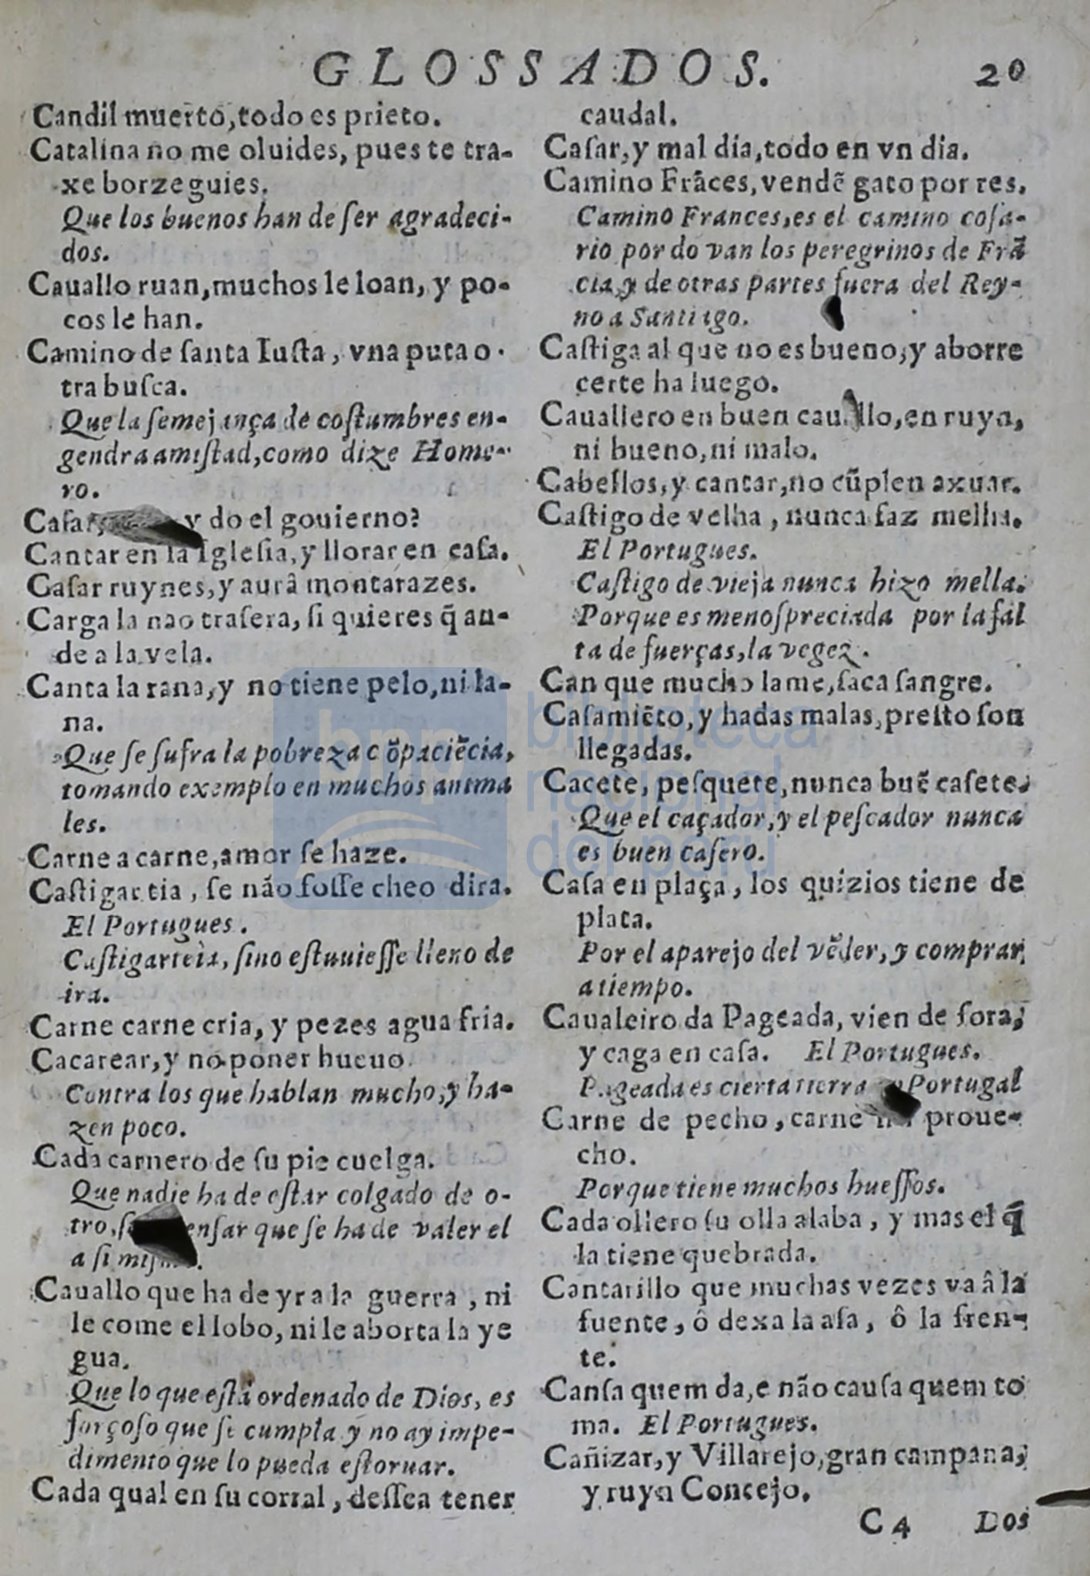 GLOSSADOS. 20
Candil muerto, todo es prieto.
Catalina no me oluides, pues te tra-
xe borzeguies.
Que los buenos han de ſer agradeci-
dos.
Cauallo ruan, muchos le loan, y po-
cos le han.
Camino de ſanta Iuſta, vna puta o-
tra buſca.
Que la ſemejança de coſtumbres en-
gendra amiſtad, como dize Home-
ro.
Caſar y do el gouierno?
Cantar en la Igleſia, y llorar en caſa.
Caſar ruynes, y aurâ montarazes.
Carga la nao traſera, ſi quieres q̃ an-
de a la vela.
Canta la rana, y no tiene pelo, ni la-
na.
Que ſe ſufra la pobreza cõ paciẽcia,
tomando exemplo en muchos anima
les.
Carne a carne, amor ſe haze.
Caſtigar tia, ſe não foſſe cheo dira.
El Portugues.
Caſtigarteia, ſino eſtuuieſſe lleno de
ira.
Carne carne cria, y pezes agua fria.
Cacarear, y no poner hueuo.
Contra los que hablan mucho, y ha-
zen poco.
Cada carnero de ſu pie cuelga.
Que nadie ha de eſtar colgado de o-
tro, nſar que ſe ha de valer el
a ſi
Cauallo que ha de yr a la guerra, ni
le come el lobo, ni le aborta la ye
gua.
Que lo que eſtá ordenado de Dios, es
forçoſo que ſe cumpla y no ay impe-
dimento que lo pueda eſtoruar.
Cada qual en ſu corral, deſſea tener
caudal.
Caſar, y mal dia, todo en vn dia.
Camino Frãces, vendẽ gato por res.
Camino Frances, es el camino coſa-
rio por do van los peregrinos de Frã
cia, y de otras partes fuera del Rey-
no a Santiago.
Caſtiga al que no es bueno, y aborre
certe ha luego.
Cauallero en buen cauallo, en ruyn,
ni bueno, ni malo.
Cabellos, y cantar, no cũplen axuar.
Caſtigo de velha, nunca faz melha.
El Portugues.
Caſtigo de vieja nunca hizo mella.
Porque es menoſpreciada por la fal
ta de fuerças, la vegez.
Can que mucho lame, ſaca ſangre.
Caſamiẽto, y hadas malas, preſto ſon
llegadas.
Cacete, peſquete, nunca buẽ caſete.
Que el caçador, y el peſcador nunca
es buen caſero.
Caſa en plaça, los quizios tiene de
plata.
Por el aparejo del vẽder, y comprar
a tiempo.
Caualeiro da Pageada, vien de fora,
y caga en caſa. El Portugues.
Pageada es cierta tierra Portugal
Carne de pecho, carne proue-
cho.
Porque tiene muchos hueſſos.
Cada ollero ſu olla alaba, y mas el q̃
la tiene quebrada.
Cantarillo que muchas vezes va â la
fuente, ô dexa la aſa, ô la fren-
te.
Canſa quem da, e não cauſa quem to
ma. El Portugues.
Cañizar, y Villarejo, gran campana,
y ruyn Concejo.
C 4 Dos
biblioteca
nacional
del perú
bnp